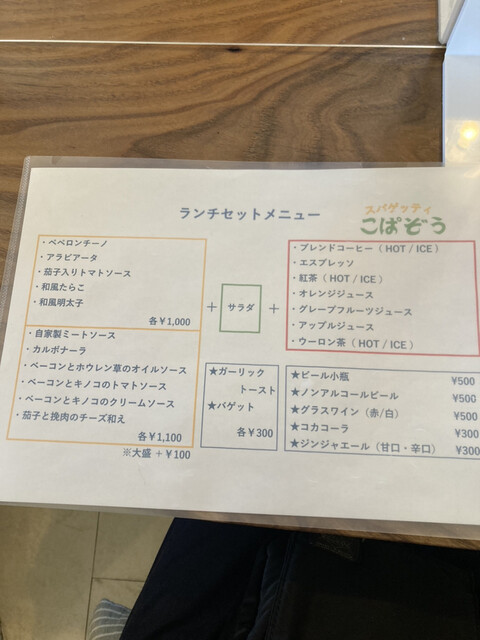 ランチセットメニュー
スパゲッティ
こぱぞう
・ペペロンチーノ
・アラビアータ
・茄子入りトマトソース
・和風たらこ
・和風明太子
各￥1,000
・自家製ミートソース
・カルボナーラ
・ベーコンとホウレン草のオイルソース
・ベーコンとキノコのトマトソース
・ベーコンとキノコのクリームソース
・茄子と挽肉のチーズ和え
各￥1,100
※大盛 +￥100
+
サラダ
+
・ブレンドコーヒー（HOT / ICE）
・エスプレッソ
・紅茶（HOT / ICE）
・オレンジジュース
・グレープフルーツジュース
・アップルジュース
・ウーロン茶（HOT / ICE）
★ガーリック
トースト
★バゲット
各￥300
★ビール小瓶 ¥500
★ノンアルコールビール ¥500
★グラスワイン（赤/白） ¥500
★コカコーラ ¥300
★ジンジャエール（甘口・辛口） ¥300